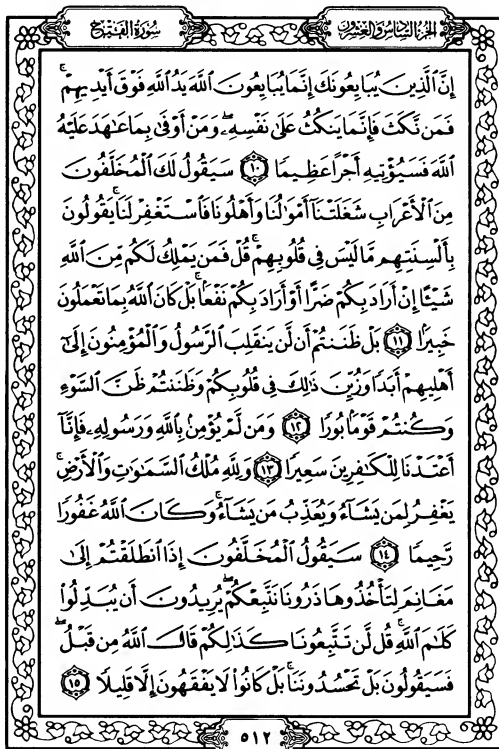 الجزء السادس والعشرون
سورة الفتح
إِنَّ الَّذِينَ يُبَايِعُونَكَ إِنَّمَا يُبَايِعُونَ اللَّهَ يَدُ اللَّهِ فَوْقَ أَيْدِيهِمْ ۚ
فَمَن نَّكَثَ فَإِنَّمَا يَنكُثُ عَلَىٰ نَفْسِهِۦ ۖ وَمَنْ أَوْفَىٰ بِمَا عَٰهَدَ عَلَيْهُ
اللَّهَ فَسَيُؤْتِيهِ أَجْرًا عَظِيمًا ١٠ سَيَقُولُ لَكَ الْمُخَلَّفُونَ
مِنَ الْأَعْرَابِ شَغَلَتْنَآ أَمْوَٰلُنَا وَأَهْلُونَا فَاسْتَغْفِرْ لَنَا ۚ يَقُولُونَ
بِأَلْسِنَتِهِم مَّا لَيْسَ فِي قُلُوبِهِمْ ۚ قُلْ فَمَن يَمْلِكُ لَكُم مِّنَ اللَّهِ
شَيْـًٔا إِنْ أَرَادَ بِكُمْ ضَرًّا أَوْ أَرَادَ بِكُمْ نَفْعًۢا ۚ بَلْ كَانَ اللَّهُ بِمَا تَعْمَلُونَ
خَبِيرًۢا ١١ بَلْ ظَنَنتُمْ أَن لَّن يَنقَلِبَ الرَّسُولُ وَالْمُؤْمِنُونَ إِلَىٰٓ
أَهْلِيهِمْ أَبَدًا وَزُيِّنَ ذَٰلِكَ فِي قُلُوبِكُمْ وَظَنَنتُمْ ظَنَّ السَّوْءِ
وَكُنتُمْ قَوْمًۢا بُورًا ١٢ وَمَن لَّمْ يُؤْمِنۢ بِاللَّهِ وَرَسُولِهِۦ فَإِنَّآ
أَعْتَدْنَا لِلْكَٰفِرِينَ سَعِيرًا ١٣ وَلِلَّهِ مُلْكُ السَّمَٰوَٰتِ وَالْأَرْضِ ۚ
يَغْفِرُ لِمَن يَشَآءُ وَيُعَذِّبُ مَن يَشَآءُ ۚ وَكَانَ اللَّهُ غَفُورًا
رَّحِيمًا ١٤ سَيَقُولُ الْمُخَلَّفُونَ إِذَا انطَلَقْتُمْ إِلَىٰ
مَغَانِمَ لِتَأْخُذُوهَا ذَرُونَا نَتَّبِعْكُمْ ۖ يُرِيدُونَ أَن يُبَدِّلُوا۟
كَلَٰمَ اللَّهِ ۚ قُل لَّن تَتَّبِعُونَا كَذَٰلِكُمْ قَالَ اللَّهُ مِن قَبْلُ ۖ
فَسَيَقُولُونَ بَلْ تَحْسُدُونَنَا ۚ بَلْ كَانُوا۟ لَا يَفْقَهُونَ إِلَّا قَلِيلًا ١٥
٥١٢